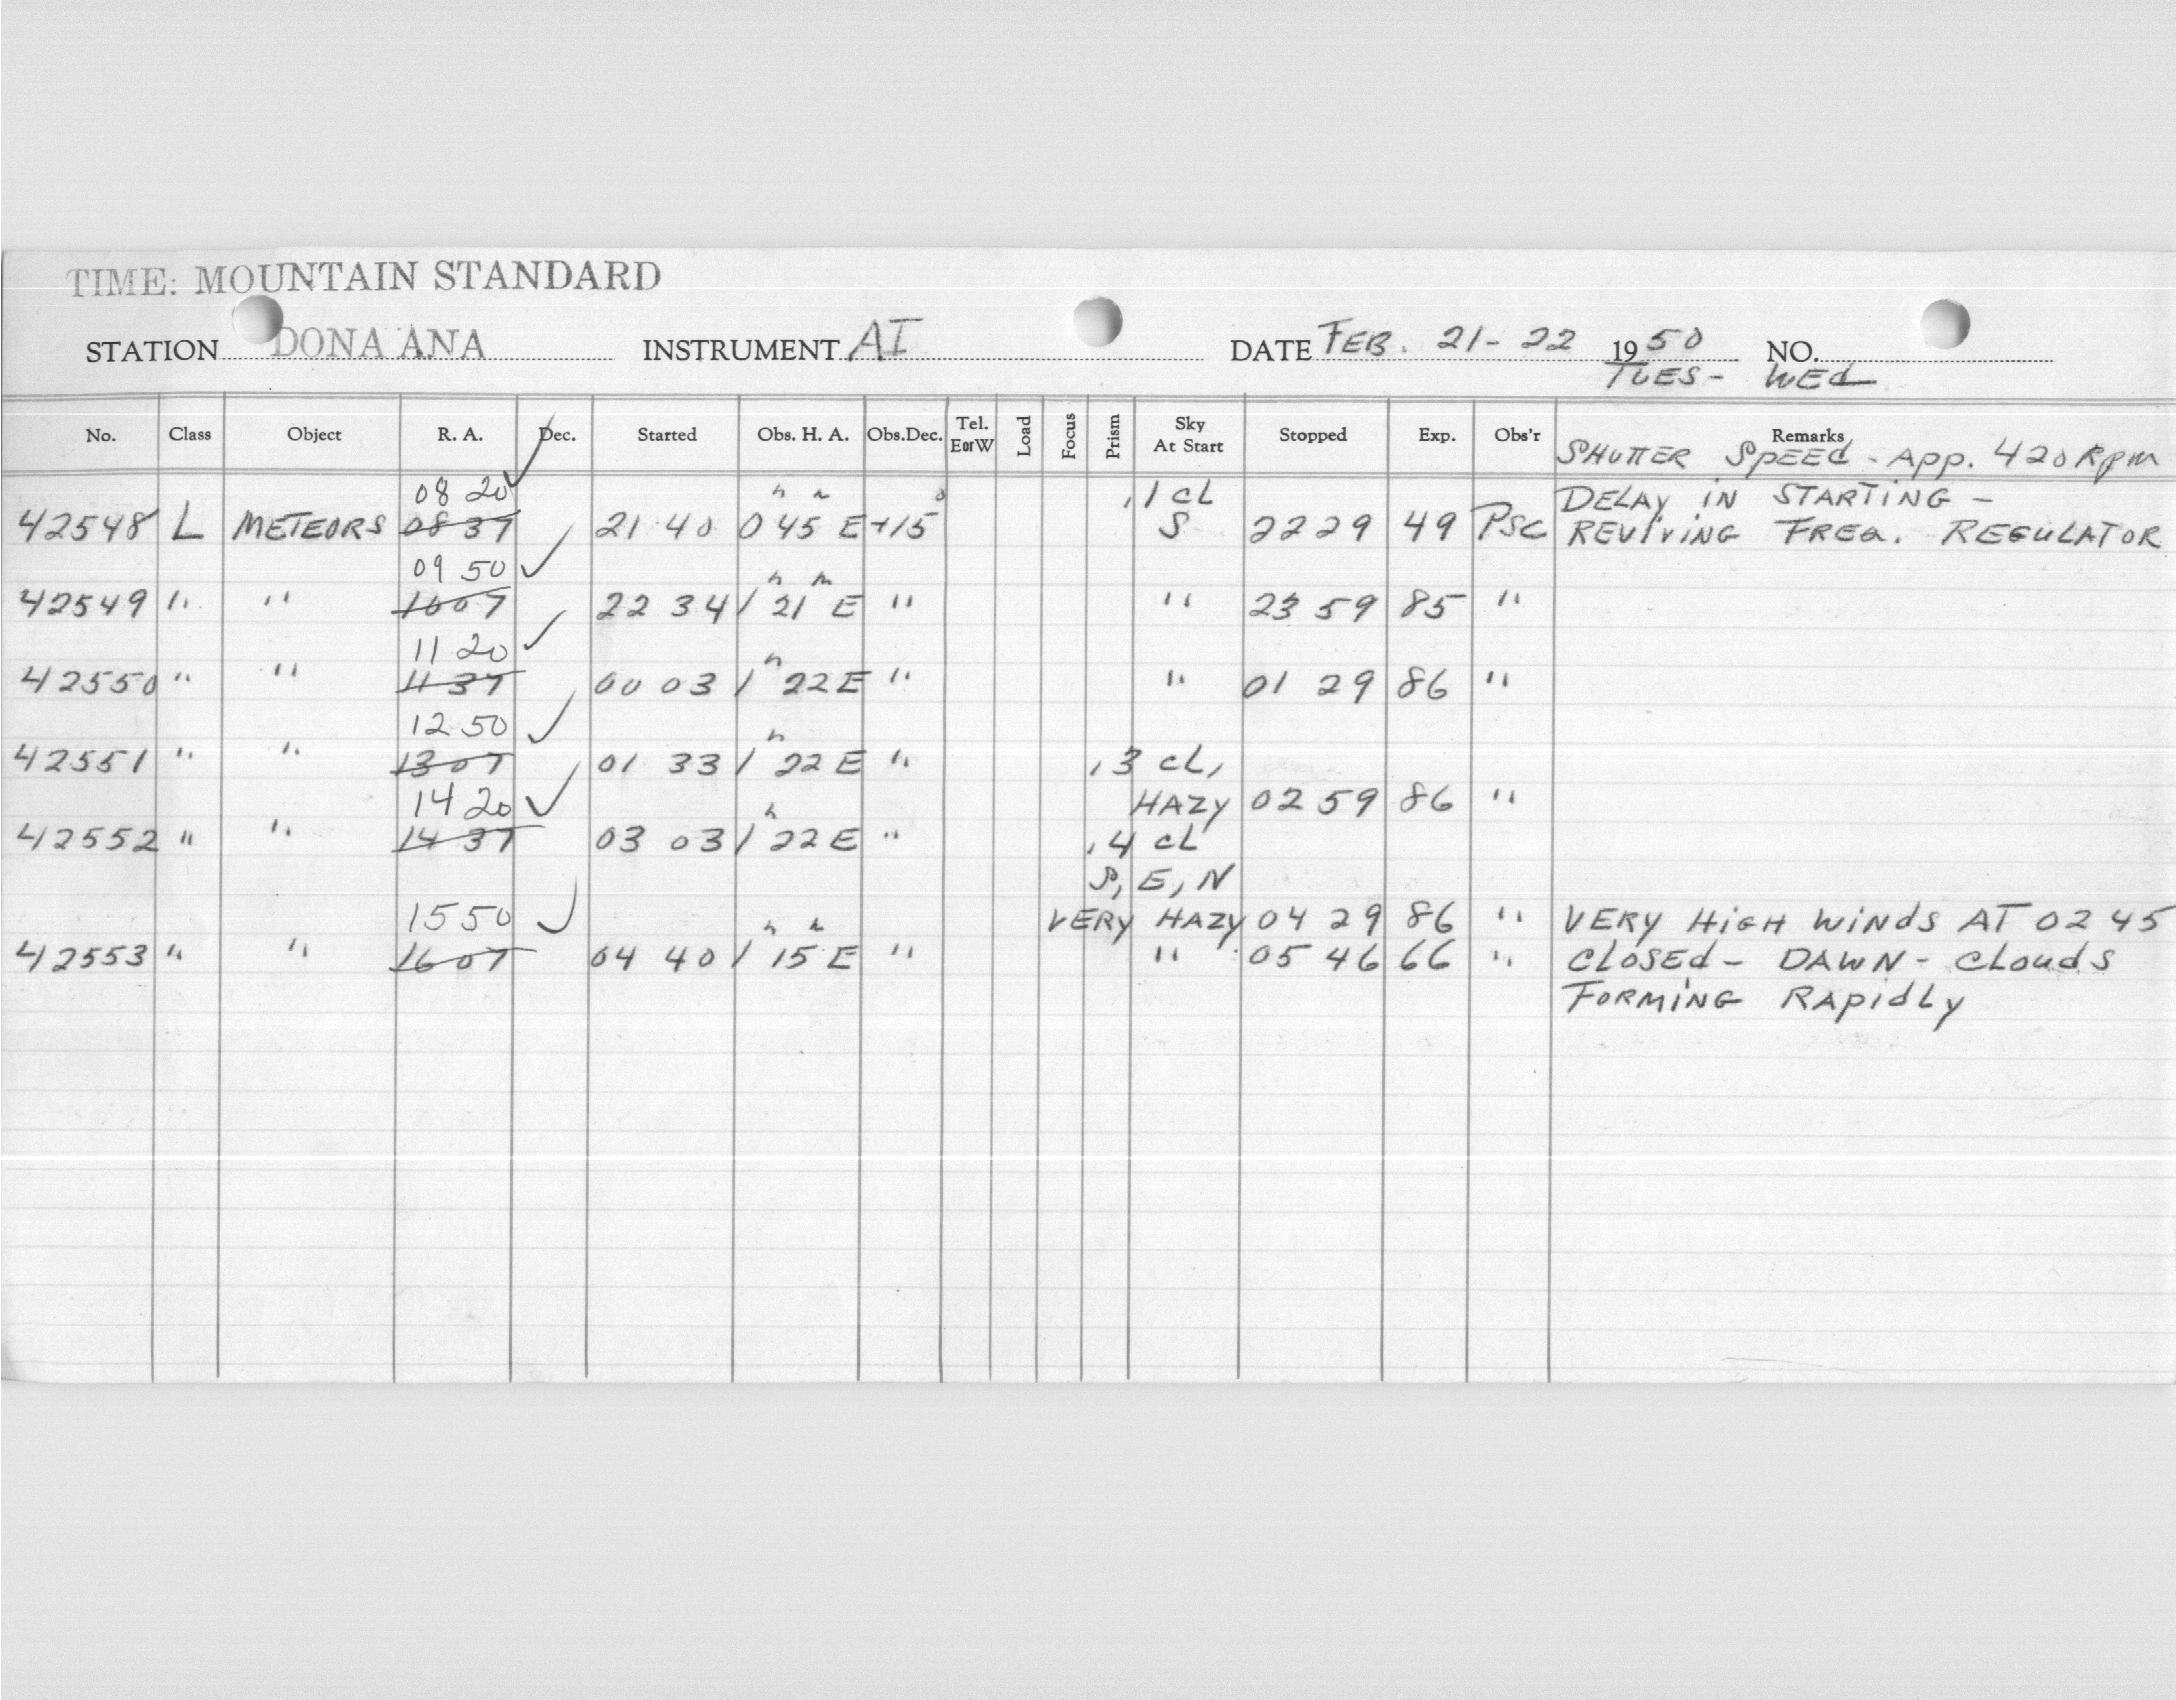 TIME: MOUNTAIN STANDARD
STATION DONA ANA INSTRUMENT AI DATE FEB. 21-22 1950 NO.
TUES - WEd
No. Class Object R. A. Dec. Started Obs. H. A. Obs.Dec. Tel. E or W Load Focus Prism Sky At Start Stopped Exp. Obs'r Remarks
SHUTTER SPEEd - App. 420 Rpm
08 20 ✓ h m o .1 cL DELAY IN STARTING -
42548 L METEORS 08 37 21 40 0 45 E +15 S 22 29 49 PSC REVIVING FREQ. REGULATOR
09 50 ✓ h m
42549 " " 10 07 22 34 1 21 E " " 23 59 85 "
11 20 ✓ h
42550 " " 11 37 00 03 1 22 E " " 01 29 86 "
12 50 ✓ h
42551 " " 13 07 01 33 1 22 E " .3 cL,
14 20 ✓ h HAZY 02 59 86 "
42552 " " 14 37 03 03 1 22 E " .4 cL
S, E, N
15 50 ✓ h m VERY HAZY 04 29 86 " VERY HIGH WINdS AT 02 45
42553 " " 16 07 04 40 1 15 E " " 05 46 66 " CLOSEd - DAWN - CLoudS
FORMING RApidLy